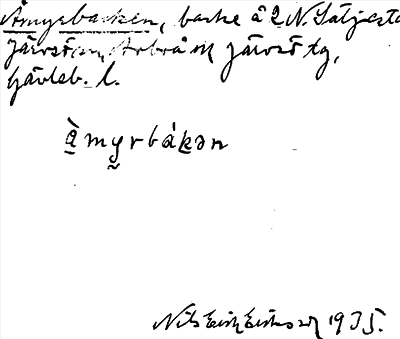 Åmyrbacken, backe å 2 N. Sätjesta
Järvsö sn, Arbrå och Järvsö tg,
Gävleb. l.
å̀myrbákən
Nils Erik Eriksson 1935.